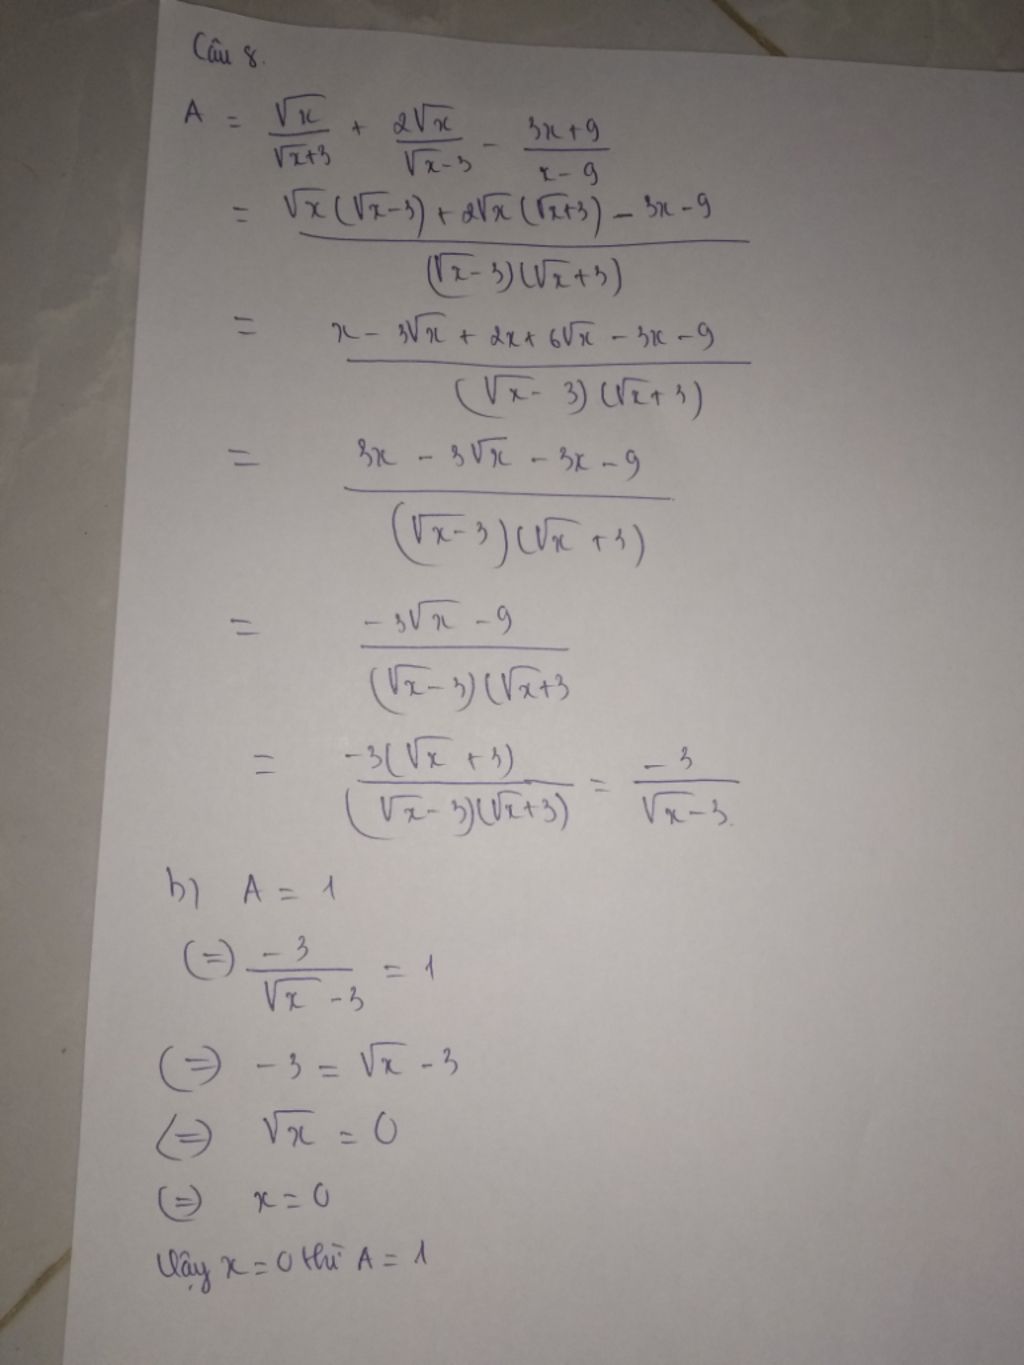 Câu 8.
A = √x/(√x+3) + 2√x/(√x-3) - (3x+9)/(x-9)
= (√x(√x-3) + 2√x(√x+3) - 3x-9)/((√x-3)(√x+3))
= (x - 3√x + 2x + 6√x - 3x - 9)/((√x-3)(√x+3))
= (3x - 3√x - 3x - 9)/((√x-3)(√x+3))
= (-3√x - 9)/((√x-3)(√x+3
= (-3(√x+3))/((√x-3)(√x+3)) = -3/(√x-3).
b) A = 1
(=) -3/(√x-3) = 1
(=) -3 = √x - 3
(=) √x = 0
(=) x = 0
Vậy x = 0 thì A = 1